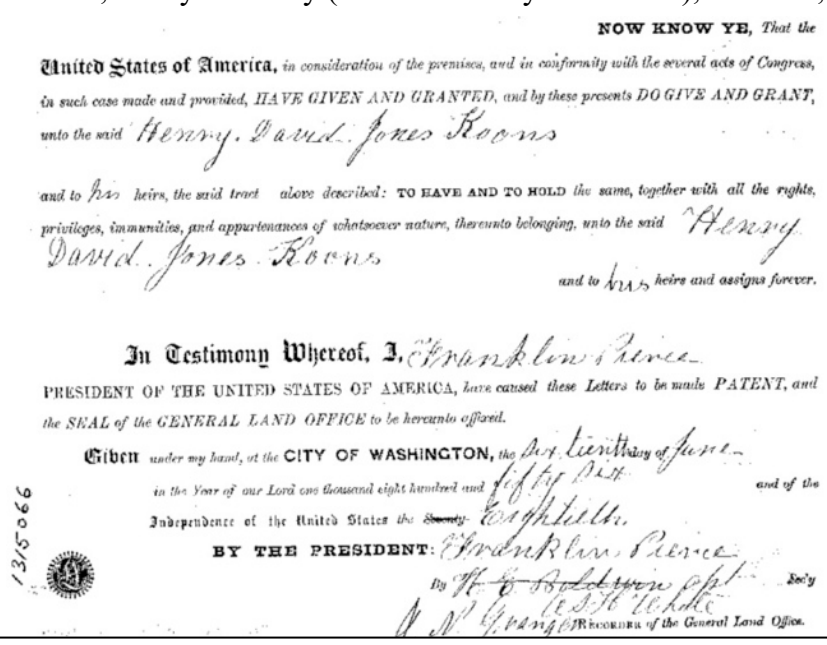 NOW KNOW YE, That the
United States of America, in consideration of the premises, and in conformity with the several acts of Congress,
in such case made and provided, HAVE GIVEN AND GRANTED, and by these presents DO GIVE AND GRANT,
unto the said Henry David Jones Koons
and to his heirs, the said tract above described: TO HAVE AND TO HOLD the same, together with all the rights,
privileges, immunities, and appurtenances of whatsoever nature, thereunto belonging, unto the said Henry
David Jones Koons
and to his heirs and assigns forever.
In Testimony Whereof, I, Franklin Pierce
PRESIDENT OF THE UNITED STATES OF AMERICA, have caused these Letters to be made PATENT, and
the SEAL of the GENERAL LAND OFFICE to be hereunto affixed.
Given under my hand, at the CITY OF WASHINGTON, the Sixteenth day of June
in the Year of our Lord one thousand eight hundred and fifty Six and of the
Independence of the United States the Eightieth.
BY THE PRESIDENT: Franklin Pierce
By Sec'y
RECORDER of the General Land Office.
1315066